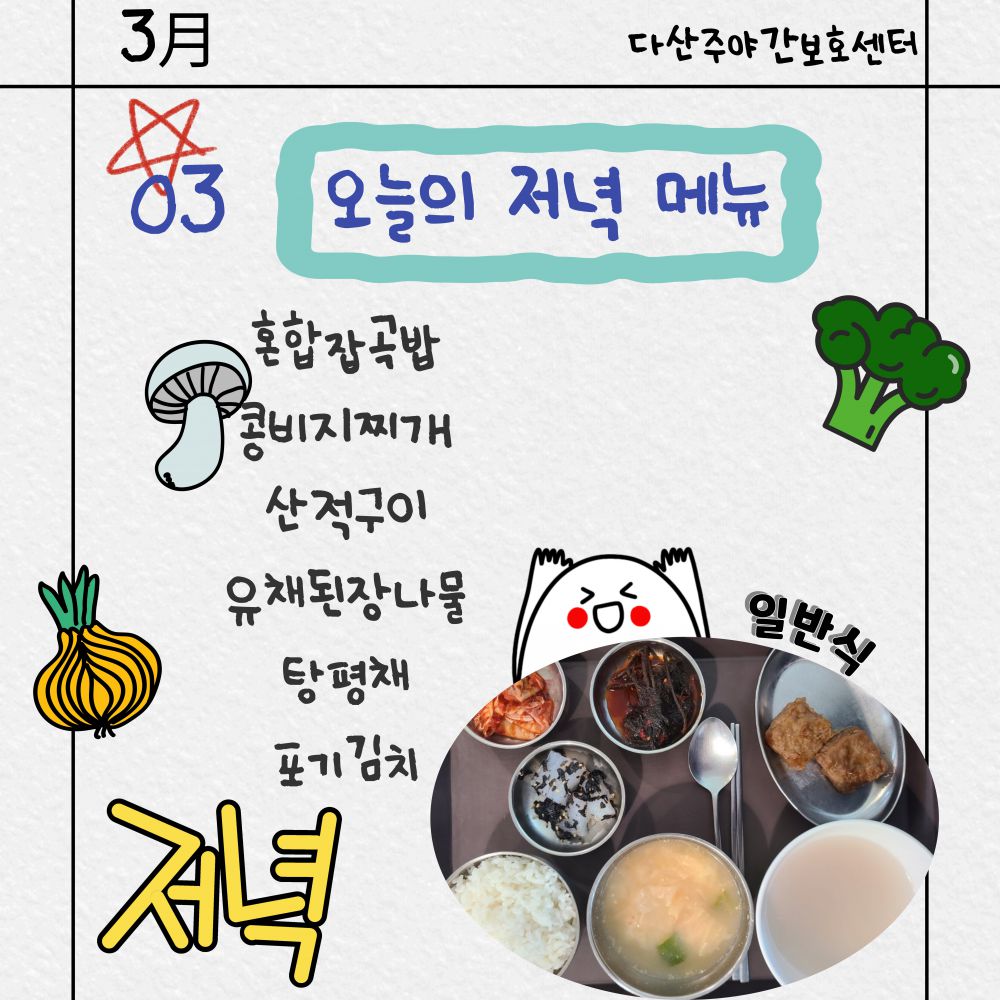 3月
다산주야간보호센터
03
오늘의 저녁 메뉴
혼합잡곡밥
콩비지찌개
산적구이
유채된장나물
탕평채
포기김치
일반식
저녁